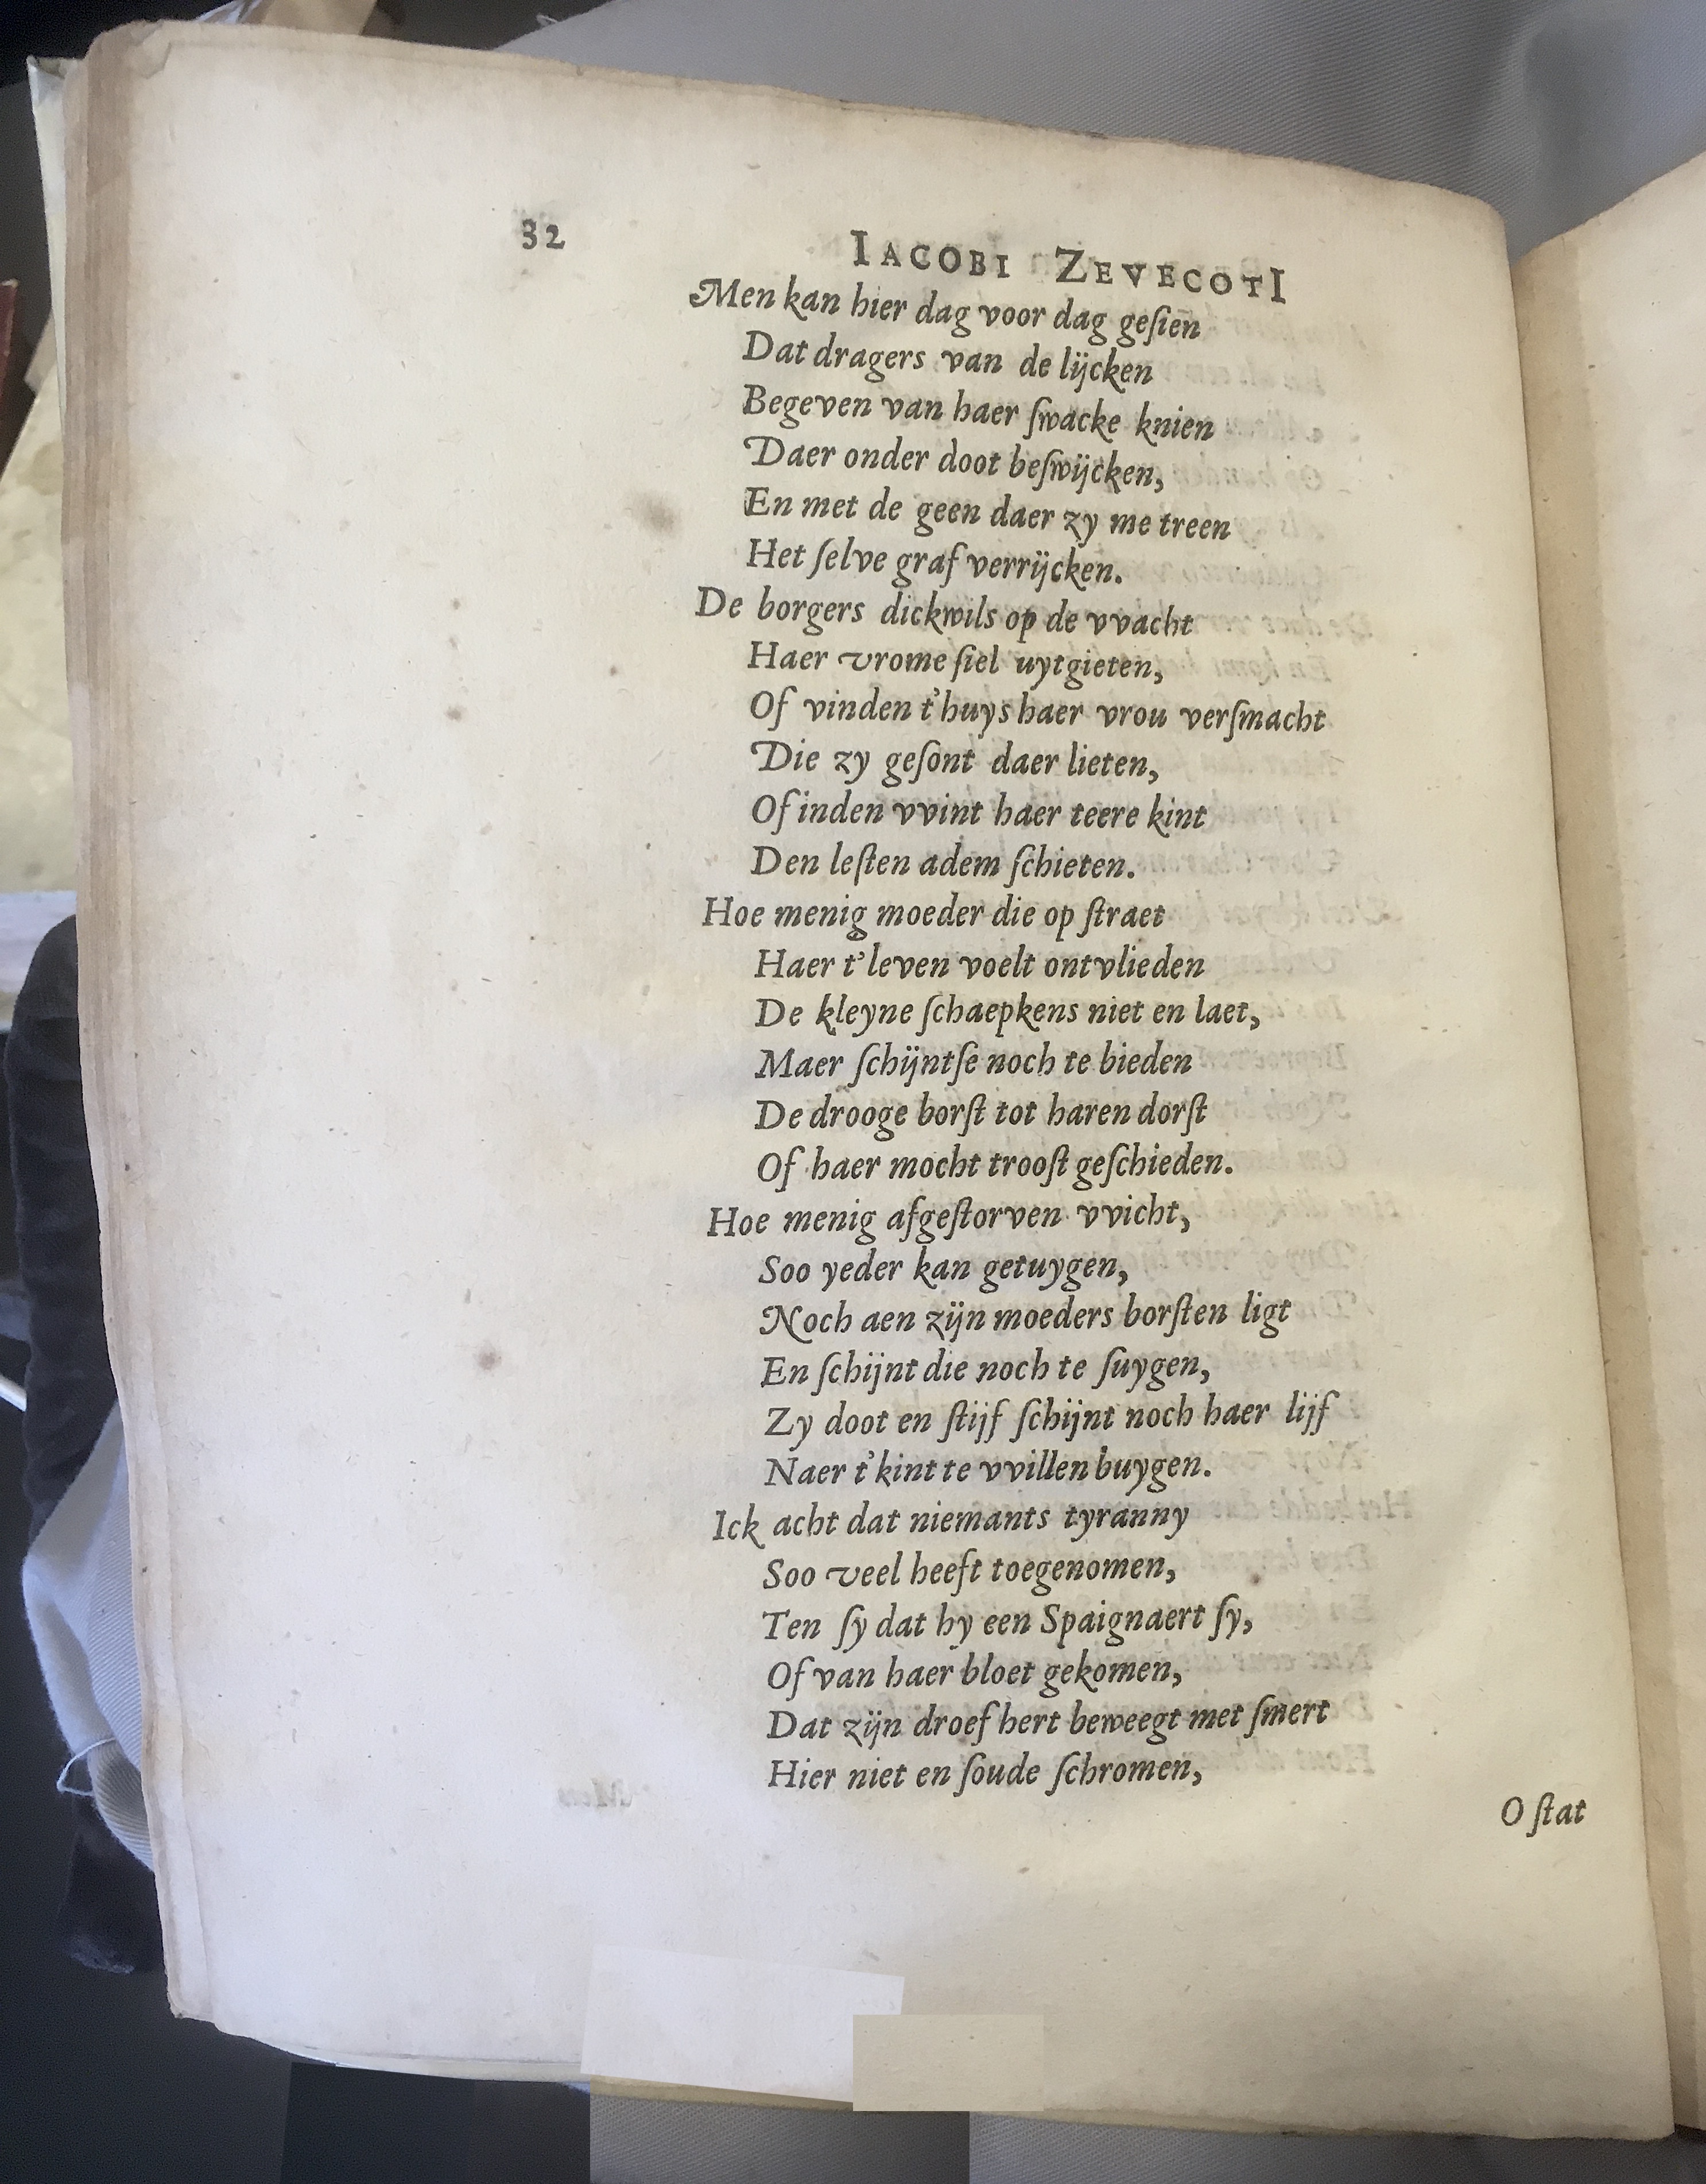 32
IACOBI ZEVECOTI
Men kan hier dag voor dag geſien
Dat dragers van de lijcken
Begeven van haer ſwacke knien
Daer onder doot beſwijcken,
En met de geen daer zy me treen
Het ſelve graf verrijcken.
De borgers dickwils op de vvacht
Haer vrome ſiel uytgieten,
Of vinden t'huys haer vrou verſmacht
Die zy geſont daer lieten,
Of inden vvint haer teere kint
Den leſten adem ſchieten.
Hoe menig moeder die op ſtraet
Haer t'leven voelt ontvlieden
De kleyne ſchaepkens niet en laet,
Maer ſchijntſe noch te bieden
De drooge borſt tot haren dorſt
Of haer mocht trooſt geſchieden.
Hoe menig afgeſtorven vvicht,
Soo yeder kan getuygen,
Noch aen zijn moeders borſten ligt
En ſchijnt die noch te ſuygen,
Zy doot en ſtijf ſchijnt noch haer lijf
Naer t'kint te vvillen buygen.
Ick acht dat niemants tyranny
Soo veel heeft toegenomen,
Ten ſy dat hy een Spaignaert ſy,
Of van haer bloet gekomen,
Dat zijn droef hert beweegt met ſmert
Hier niet en ſoude ſchromen,
O ſtat